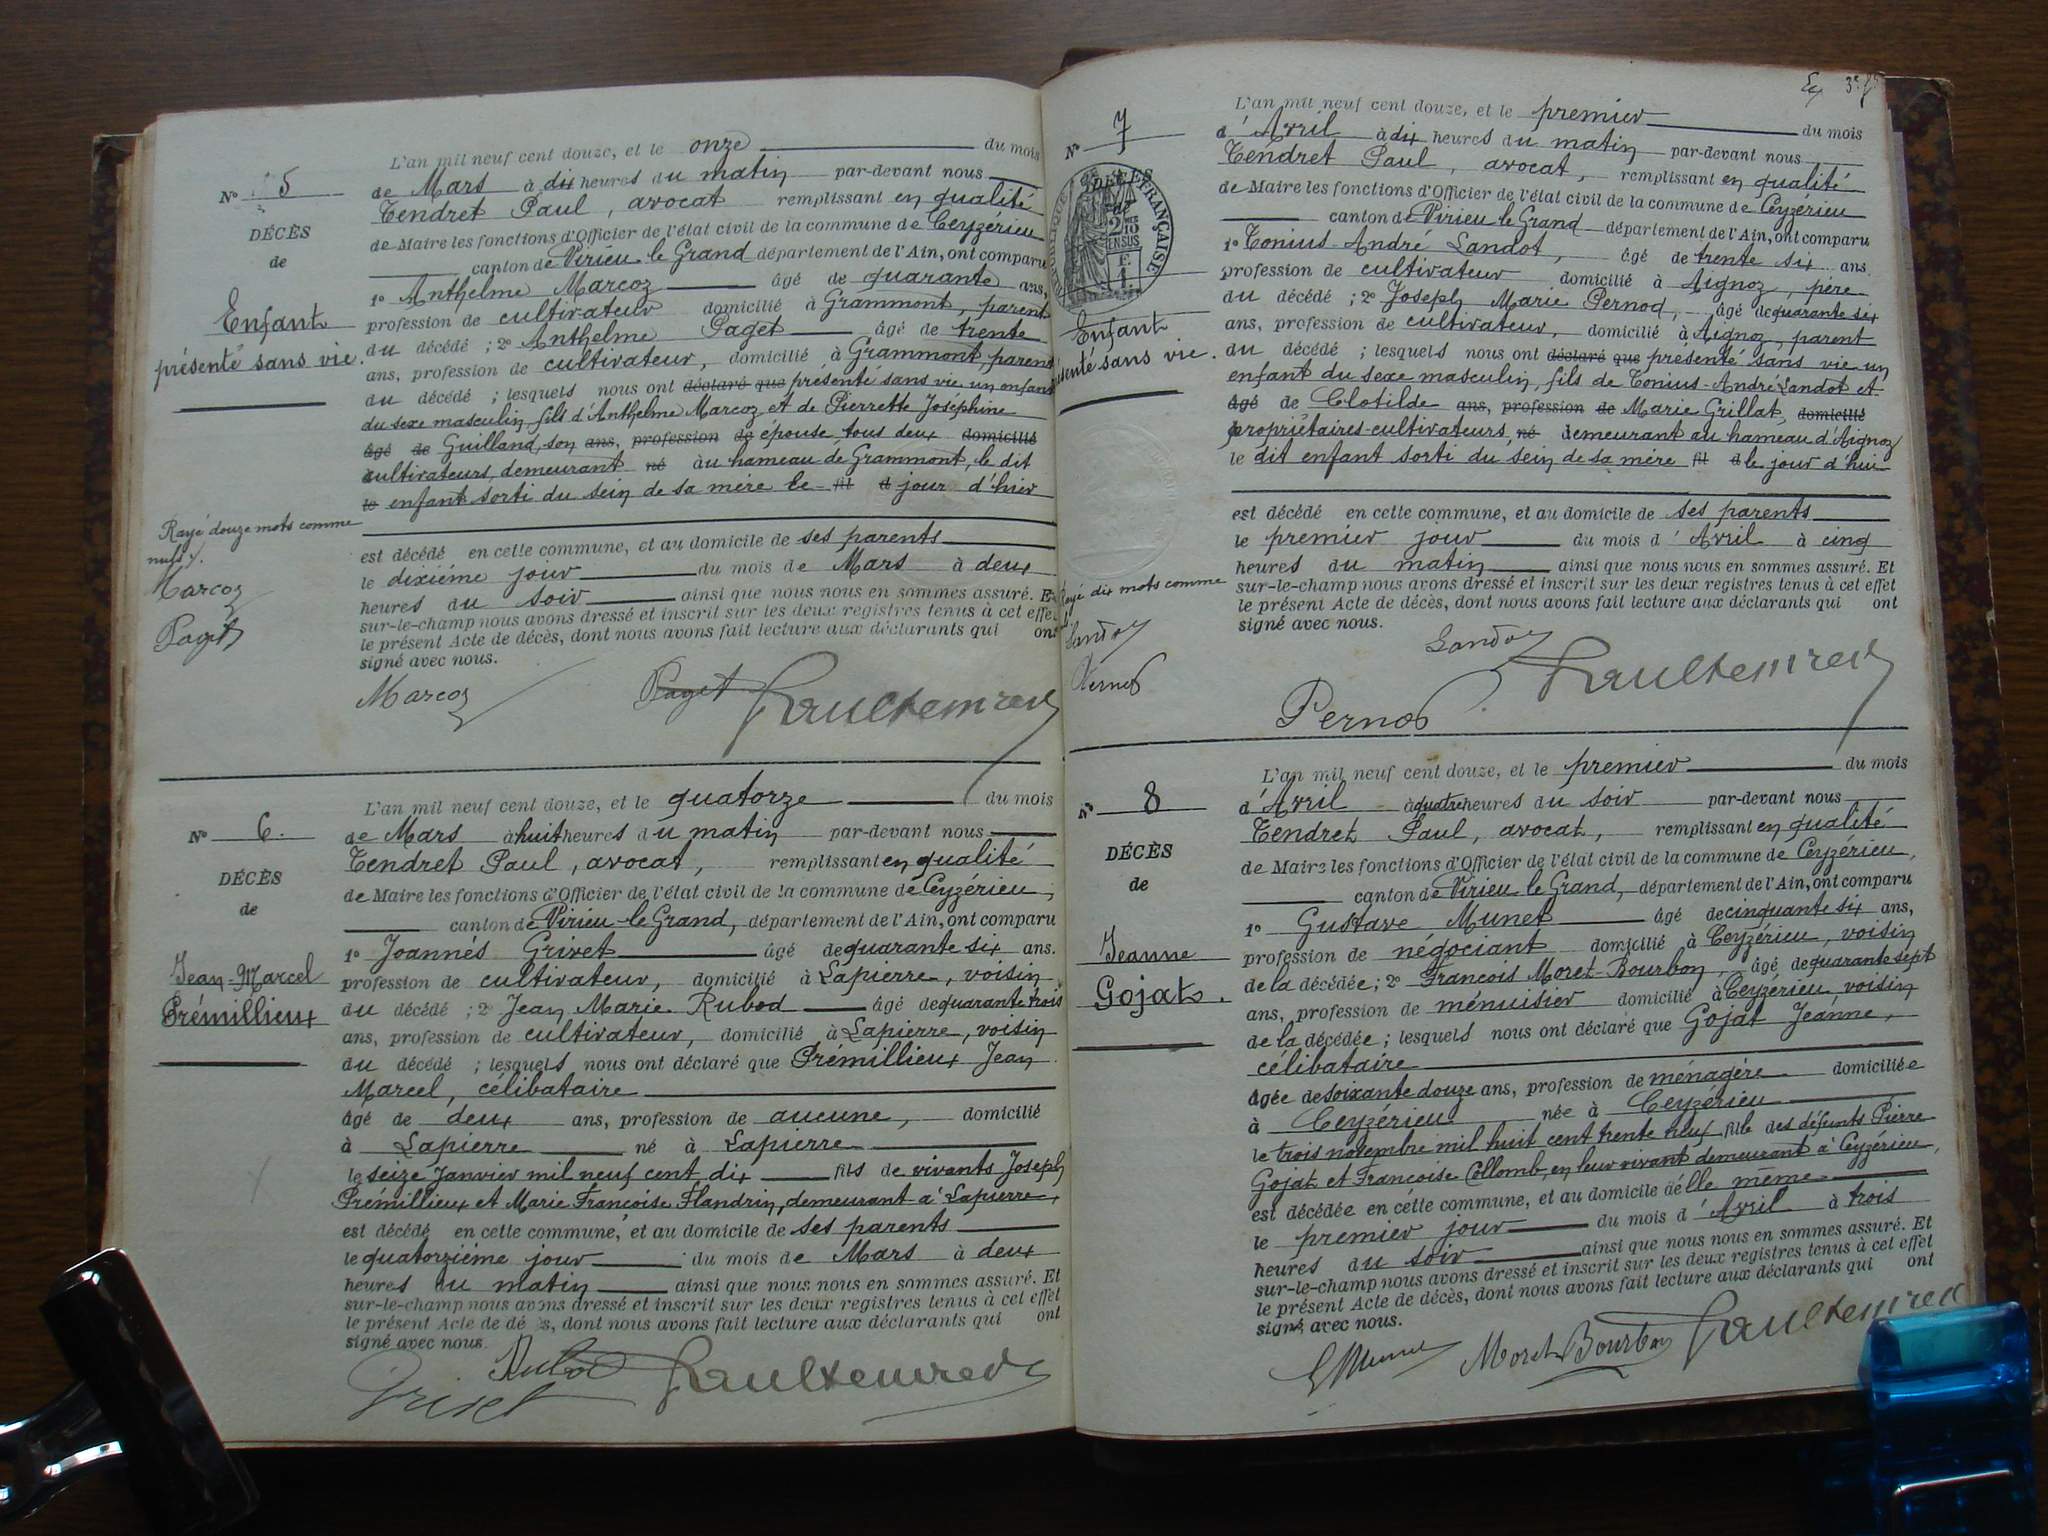 N° 5
DÉCÈS
de
Enfant
présenté sans vie.
L'an mil neuf cent douze, et le onze du mois
de Mars à dix heures du matin par-devant nous
Tendret Paul, avocat remplissant en qualité
de Maire les fonctions d'Officier de l'état civil de la commune de Ceyzérieu
canton de Virieu le Grand département de l'Ain, ont comparu
1° Anthelme Marcoz âgé de quarante ans,
profession de cultivateur domicilié à Grammont, parent
du décédé ; 2° Anthelme Paget âgé de trente
ans, profession de cultivateur, domicilié à Grammont, parent
du décédé ; lesquels nous ont déclaré que présenté sans vie un enfant
du sexe masculin, fils d'Anthelme Marcoz et de Pierrette Joséphine
âgé de Guilland, son ans, profession de épouse, tous deux domicilié
cultivateurs, demeurant né au hameau de Grammont, le dit
le enfant sorti du sein de sa mère le fil d jour d'hier
est décédé en cette commune, et au domicile de ses parents
le dixième jour du mois de Mars à deux
heures du soir ainsi que nous nous en sommes assuré. Et
sur-le-champ nous avons dressé et inscrit sur les deux registres tenus à cet effet
le présent Acte de décès, dont nous avons fait lecture aux déclarants qui ont
signé avec nous.
Rayé douze mots comme
nuls
Marcoz
Paget
Marcoz Paget Paul Tendret
N° 6.
DÉCÈS
de
Jean-Marcel
Prémillieux
L'an mil neuf cent douze, et le quatorze du mois
de Mars à huit heures du matin par-devant nous
Tendret Paul, avocat, remplissant en qualité
de Maire les fonctions d'Officier de l'état civil de la commune de Ceyzérieu,
canton de Virieu le Grand, département de l'Ain, ont comparu
1° Joannés Grivet âgé de quarante six ans.
profession de cultivateur, domicilié à Lapierre, voisin
du décédé ; 2° Jean Marie Rubod âgé de quarante trois
ans, profession de cultivateur, domicilié à Lapierre, voisin
du décédé ; lesquels nous ont déclaré que Prémillieux Jean
Marcel, célibataire
âgé de deux ans, profession de aucune, domicilié
à Lapierre né à Lapierre
le seize Janvier mil neuf cent dix fils de vivants Joseph
Prémillieux et Marie Françoise Flandrin, demeurant à Lapierre,
est décédé en cette commune, et au domicile de ses parents
le quatorzième jour du mois de Mars à deux
heures du matin ainsi que nous nous en sommes assuré. Et
sur-le-champ nous avons dressé et inscrit sur les deux registres tenus à cet effet
le présent Acte de décès, dont nous avons fait lecture aux déclarants qui ont
signé avec nous.
Rubod Paul Tendret
Grivet
3e
N° 7
DÉCÈS
de
RÉPUBLIQUE FRANÇAISE
2/10 EN SUS
F. 1.
Enfant
senté sans vie.
L'an mil neuf cent douze, et le premier du mois
d'Avril à dix heures du matin par-devant nous
Tendret Paul, avocat, remplissant en qualité
de Maire les fonctions d'Officier de l'état civil de la commune de Ceyzérieu
canton de Virieu le Grand département de l'Ain, ont comparu
1° Tonius-André Landot, âgé de trente six ans
profession de cultivateur domicilié à Aignoz, père
du décédé ; 2° Joseph Marie Pernod, âgé de quarante six
ans, profession de cultivateur, domicilié à Aignoz, parent
du décédé ; lesquels nous ont déclaré que présenté sans vie un
enfant du sexe masculin, fils de Tonius-André Landot et
âgé de Clotilde ans, profession de Marie Grillat, domicilié
propriétaires-cultivateurs, né demeurant au hameau d'Aignoz
le dit enfant sorti du sein de sa mère fil d le jour d'hui
est décédé en cette commune, et au domicile de ses parents
le premier jour du mois d'Avril à cinq
heures du matin ainsi que nous nous en sommes assuré. Et
sur-le-champ nous avons dressé et inscrit sur les deux registres tenus à cet effet
le présent Acte de décès, dont nous avons fait lecture aux déclarants qui ont
signé avec nous.
Rayé dix mots comme
Landoz
Pernod
Landoz Paul Tendret
Pernod
N° 8
DÉCÈS
de
Jeanne
Gojat.
L'an mil neuf cent douze, et le premier du mois
d'Avril à quatre heures du soir par-devant nous
Tendret Paul, avocat, remplissant en qualité
de Maire les fonctions d'Officier de l'état civil de la commune de Ceyzérieu,
canton de Virieu le Grand, département de l'Ain, ont comparu
1° Gustave Munet âgé de cinquante six ans,
profession de négociant domicilié à Ceyzérieu, voisin
de la décédée ; 2° Francois Moret-Bourbon, âgé de quarante sept
ans, profession de ménuisier domicilié à Ceyzérieu, voisin
de la décédée ; lesquels nous ont déclaré que Gojat Jeanne,
célibataire
âgée de soixante douze ans, profession de ménagère domiciliée
à Ceyzérieu née à Ceyzérieu
le trois novembre mil huit cent trente neuf fille des défunts Pierre
Gojat et Francoise Collomb, en leur vivant demeurant à Ceyzérieu,
est décédée en cette commune, et au domicile d'elle même
le premier jour du mois d'Avril à trois
heures du soir ainsi que nous nous en sommes assuré. Et
sur-le-champ nous avons dressé et inscrit sur les deux registres tenus à cet effet
le présent Acte de décès, dont nous avons fait lecture aux déclarants qui ont
signé avec nous.
G Munet Moret Bourbon Paul Tendret